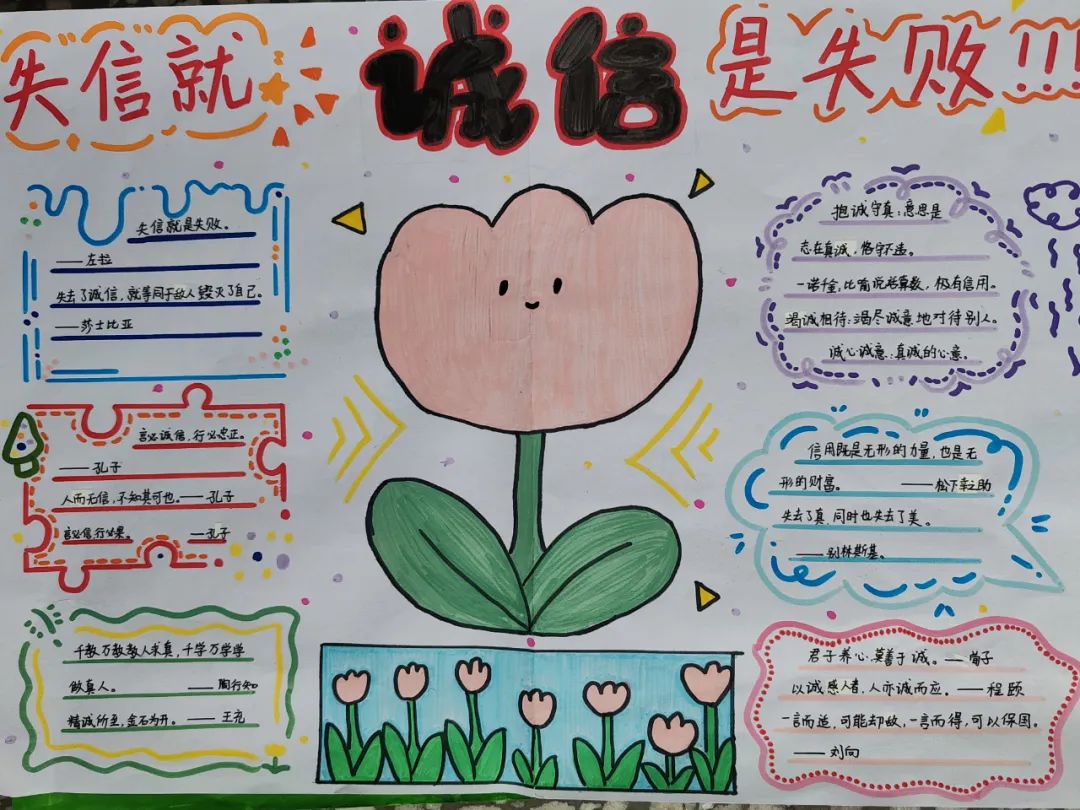 失信就 诚信 是失败!!!
失信就是失败。
——左拉
失去了诚信,就等同于敌人毁灭了自己。
——莎士比亚
言必诚信,行必忠正。
——孔子
人而无信,不知其可也。——孔子
言必信行必果。 ——孔子
千教万教教人求真,千学万学学
做真人。 ——陶行知
精诚所至,金石为开。——王充
抱诚守真:意思是
志在真诚,恪守不违。
一诺千金,比喻说话算数,极有信用。
竭诚相待:竭尽诚意地对待别人。
诚心诚意:真诚的心意。
信用既是无形的力量,也是无
形的财富。 ——松下幸之助
失去了真,同时也失去了美。
——别林斯基。
君子养心,莫善于诚。——荀子
以诚感人者,人亦诚而应。——程颐
一言而适,可能却敌,一言而得,可以保国。
——刘向